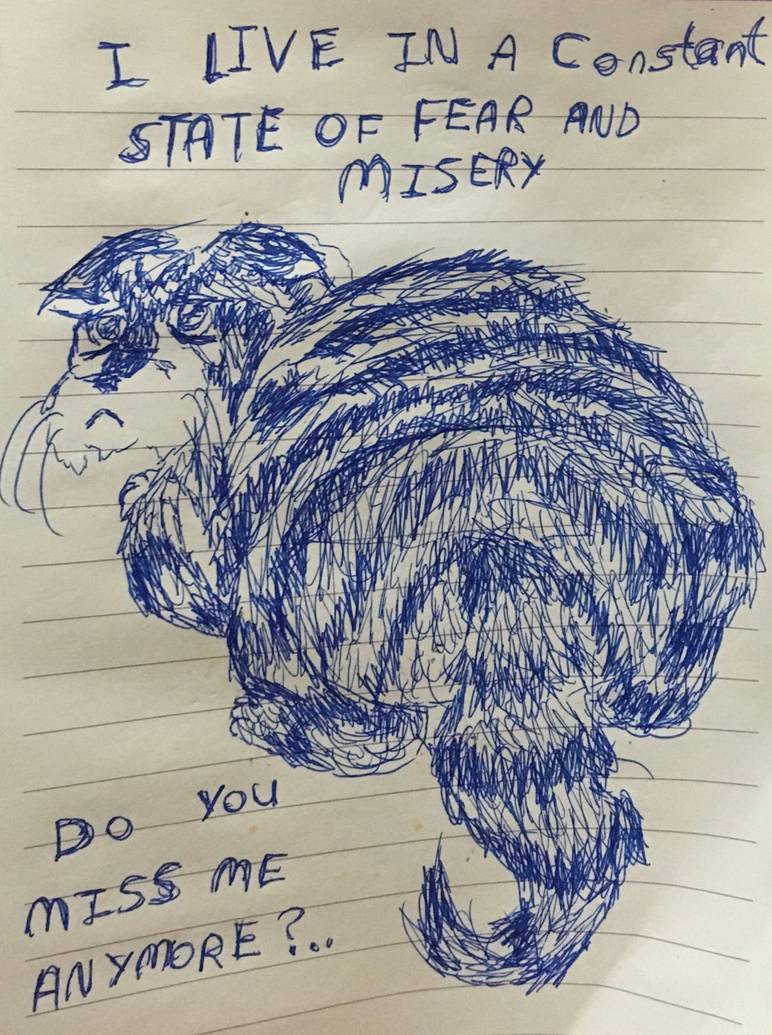 I LIVE IN A Constant
STATE OF FEAR AND
MISERY
DO YOU
MISS ME
ANYMORE?..